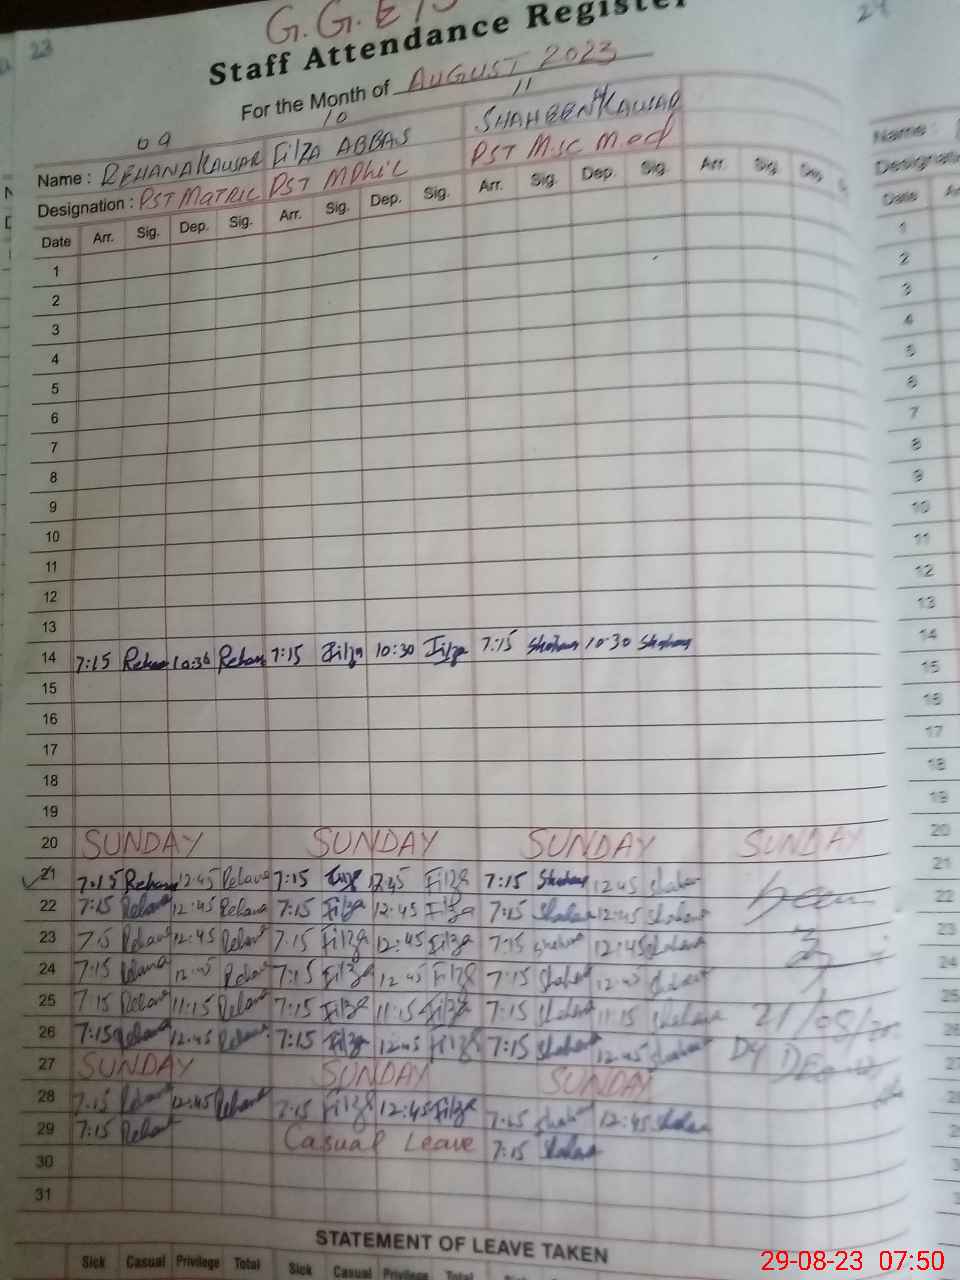 23
24
G. G. E
Staff Attendance Register
For the Month of AUGUST 2023
09 10 11
Name : REHANA KAUSAR FilZA ABBAS SHAHEEN KAUSAR
Designation : PST MATRIC PST MPhiL PST M.SC M.ed
Date Arr. Sig. Dep. Sig. Arr. Sig. Dep. Sig. Arr. Sig. Dep. Sig. Arr. Sig. Dep. S
1
2
3
4
5
6
7
8
9
10
11
12
13
14 7:15 Rehana 10:30 Rehana 7:15 Filza 10:30 Filza 7:15 Shaheen 10:30 Shaheen
15
16
17
18
19
20 SUNDAY SUNDAY SUNDAY SUNDAY
21 7:15 Rehana 12:45 Rehana 7:15 Filza 12:45 Filza 7:15 Shaheen 12:45 Shaheen
22 7:15 Rehana 12:45 Rehana 7:15 Filza 12:45 Filza 7:15 Shaheen 12:45 Shaheen
23 7:15 Rehana 12:45 Rehana 7:15 Filza 12:45 Filza 7:15 Shaheen 12:45 Shaheen
24 7:15 Rehana 12:45 Rehana 7:15 Filza 12:45 Filza 7:15 Shaheen 12:45 Shaheen
25 7:15 Rehana 11:15 Rehana 7:15 Filza 11:15 Filza 7:15 Shaheen 11:15 Shaheen
26 7:15 Rehana 12:45 Rehana 7:15 Filza 12:45 Filza 7:15 Shaheen 12:45 Shaheen
27 SUNDAY SUNDAY SUNDAY
28 7:15 Rehana 12:45 Rehana 7:15 Filza 12:45 Filza 7:15 Shaheen 12:45 Shaheen
29 7:15 Rehana Casual Leave 7:15 Shaheen
30
31
STATEMENT OF LEAVE TAKEN
Sick Casual Privilege Total Sick Casual Privilege Total Sick
Name :
Date
1
2
3
4
5
6
7
8
9
10
11
12
13
14
15
16
17
18
19
20
21
22
23
24
25
26
29-08-23 07:50